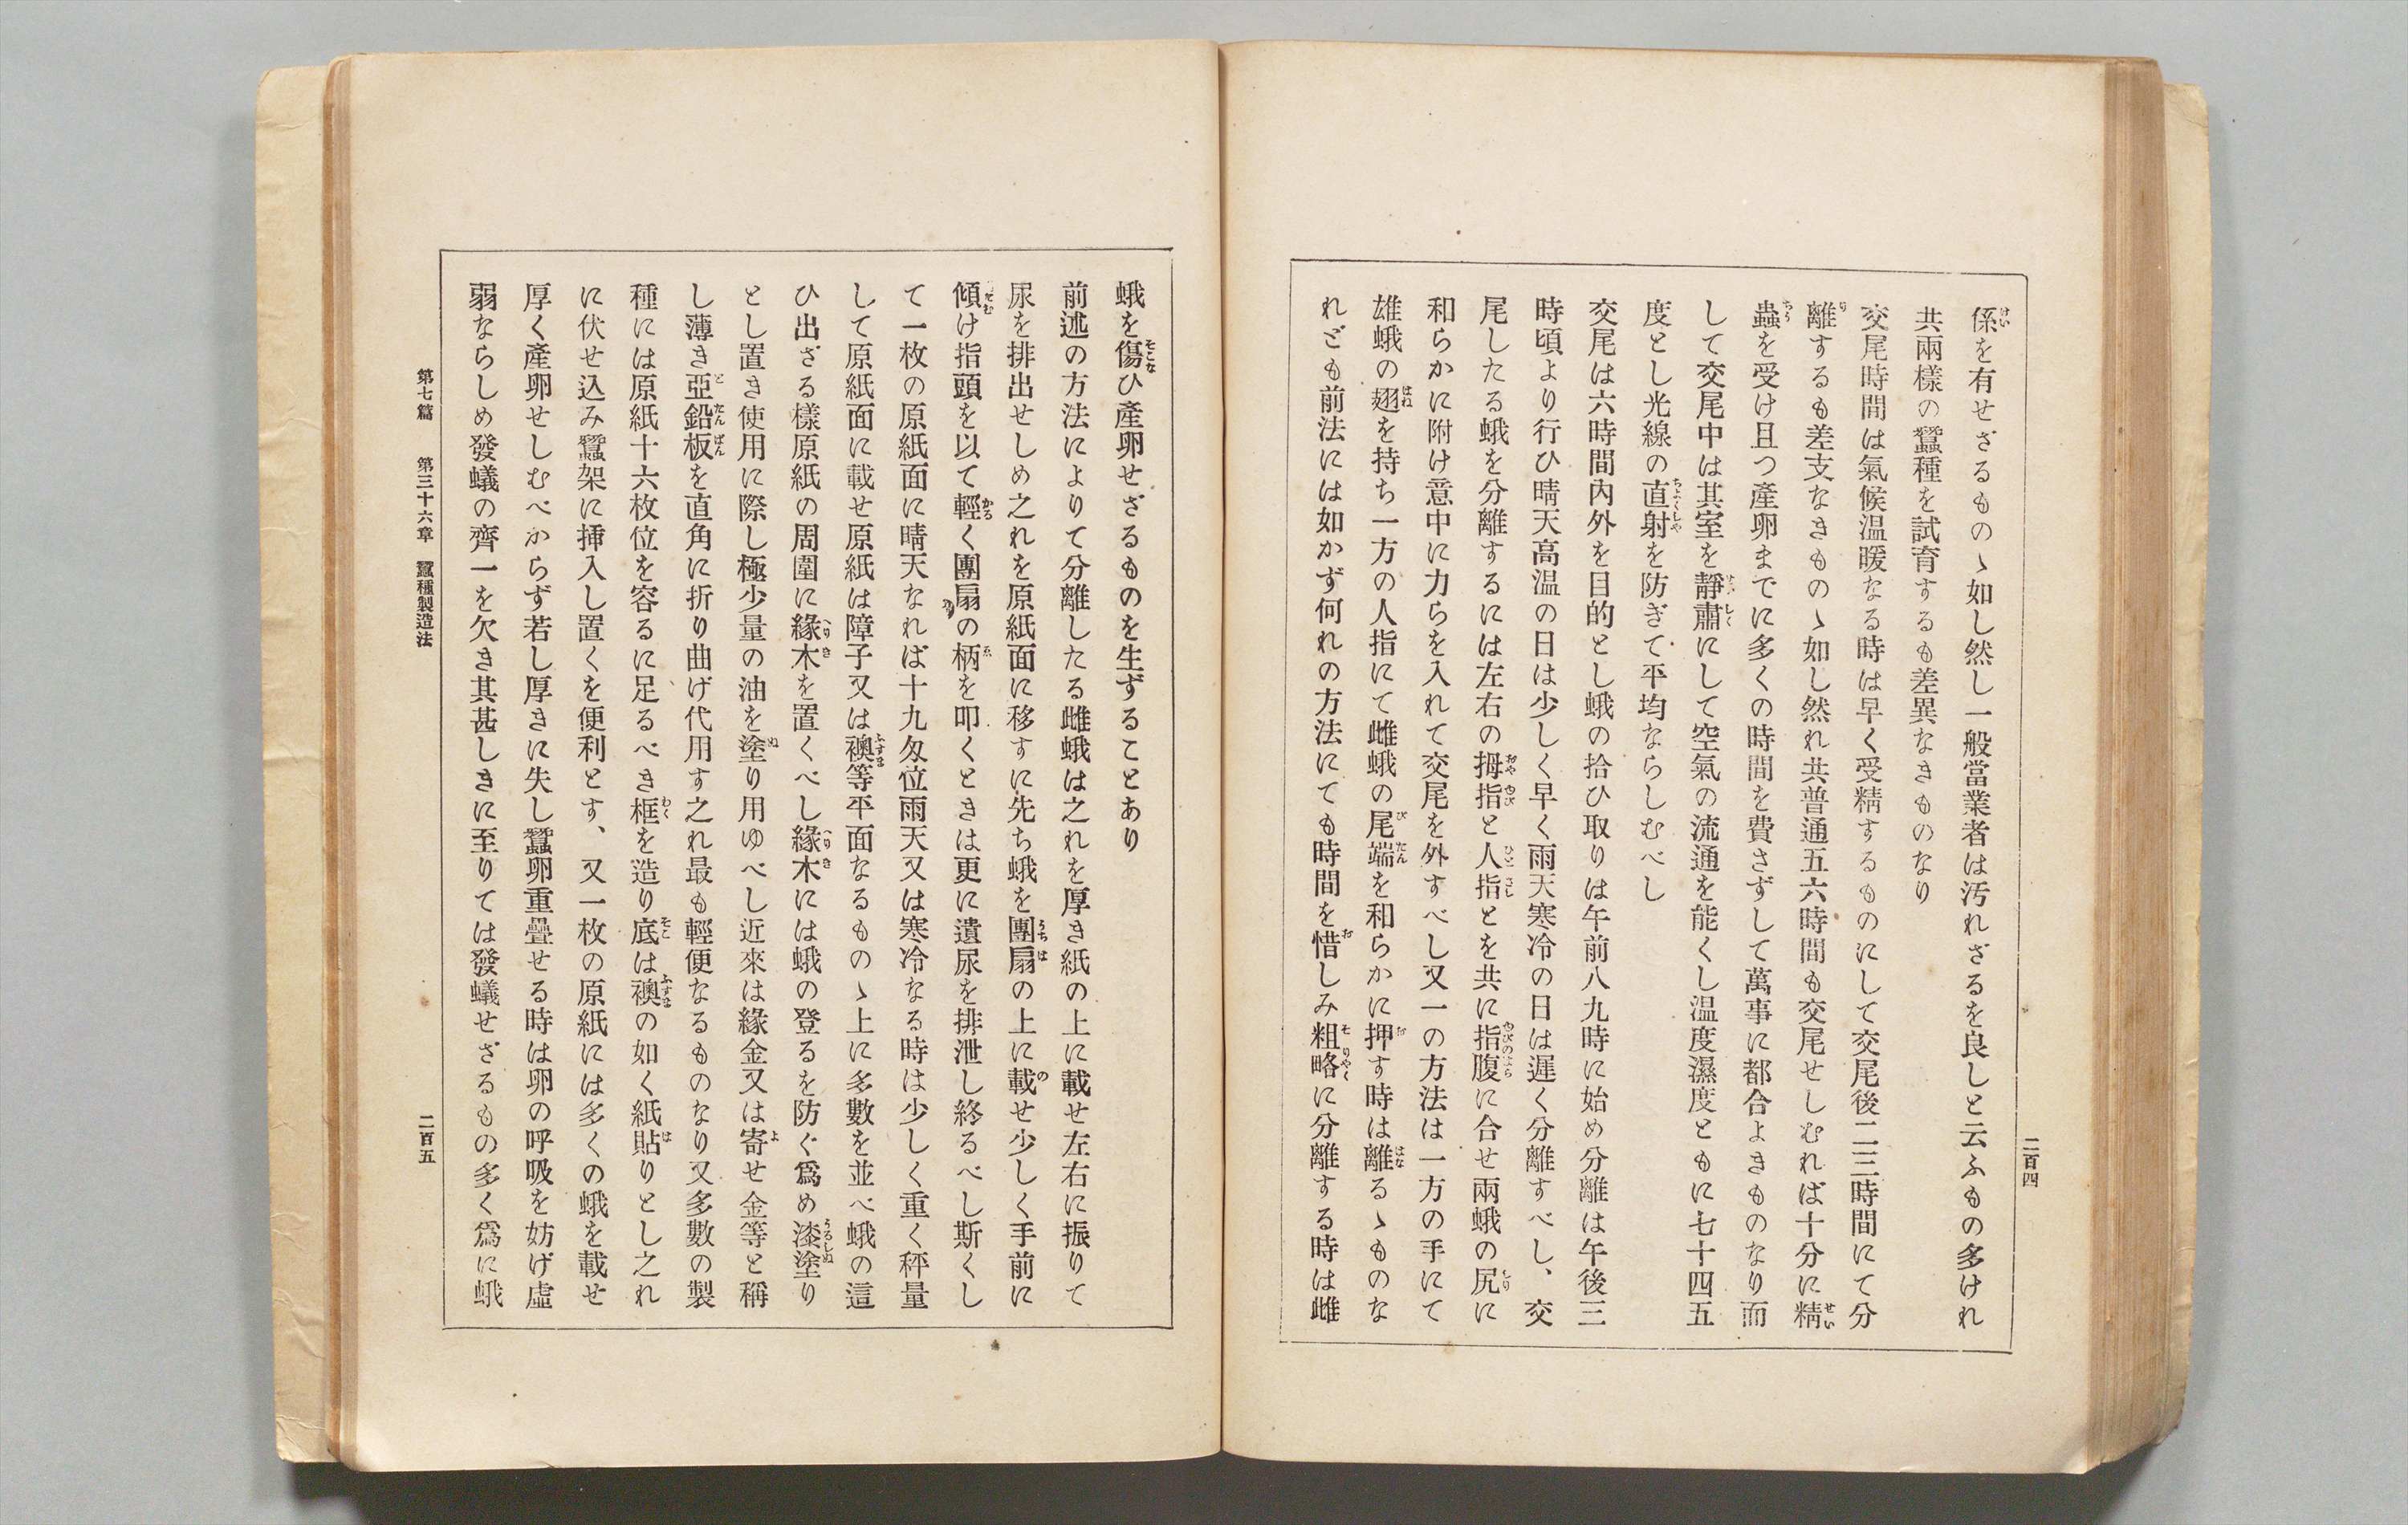 係を有せざるものゝ如し然し一般當業者は汚れざるを良しと云ふもの多けれ
共兩樣の蠶種を試育するも差異なきものなり
交尾時間は氣候温暖なる時は早く受精するものにして交尾後二三時間にて分
離するも差支なきものゝ如し然れ共普通五六時間も交尾せしむれば十分に精
蟲を受け且つ產卵までに多くの時間を費さずして萬事に都合よきものなり而
して交尾中は其室を靜肅にして空氣の流通を能くし温度濕度ともに七十四五
度とし光線の直射を防ぎて平均ならしむべし
交尾は六時間內外を目的とし蛾の拾ひ取りは午前八九時に始め分離は午後三
時頃より行ひ晴天高温の日は少しく早く雨天寒冷の日は遲く分離すべし、交
尾したる蛾を分離するには左右の拇指と人指とを共に指腹に合せ兩蛾の尻に
和らかに附け意中に力らを入れて交尾を外すべし又一の方法は一方の手にて
雄蛾の翅を持ち一方の人指にて雌蛾の尾端を和らかに押す時は離るゝものな
れども前法には如かず何れの方法にても時間を惜しみ粗略に分離する時は雌
二百四
蛾を傷ひ產卵せざるものを生ずることあり
前述の方法によりて分離したる雌蛾は之れを厚き紙の上に載せ左右に振りて
尿を排出せしめ之れを原紙面に移すに先ち蛾を團扇の上に載せ少しく手前に
傾け指頭を以て輕く團扇の柄を叩くときは更に遺尿を排泄し終るべし斯くし
て一枚の原紙面に晴天なれば十九匁位雨天又は寒冷なる時は少しく重く秤量
して原紙面に載せ原紙は障子又は襖等平面なるものゝ上に多數を並べ蛾の這
ひ出ざる樣原紙の周圍に緣木を置くべし緣木には蛾の登るを防ぐ爲め漆塗り
とし置き使用に際し極少量の油を塗り用ゆべし近來は緣金又は寄せ金等と稱
し薄き亞鉛板を直角に折り曲げ代用す之れ最も輕便なるものなり又多數の製
種には原紙十六枚位を容るに足るべき框を造り底は襖の如く紙貼りとし之れ
に伏せ込み蠶架に揷入し置くを便利とす、又一枚の原紙には多くの蛾を載せ
厚く產卵せしむべからず若し厚きに失し蠶卵重疊せる時は卵の呼吸を妨げ虛
弱ならしめ發蟻の齊一を欠き其甚しきに至りては發蟻せざるもの多く爲に蛾
第七篇 第三十六章 蠶種製造法
二百五